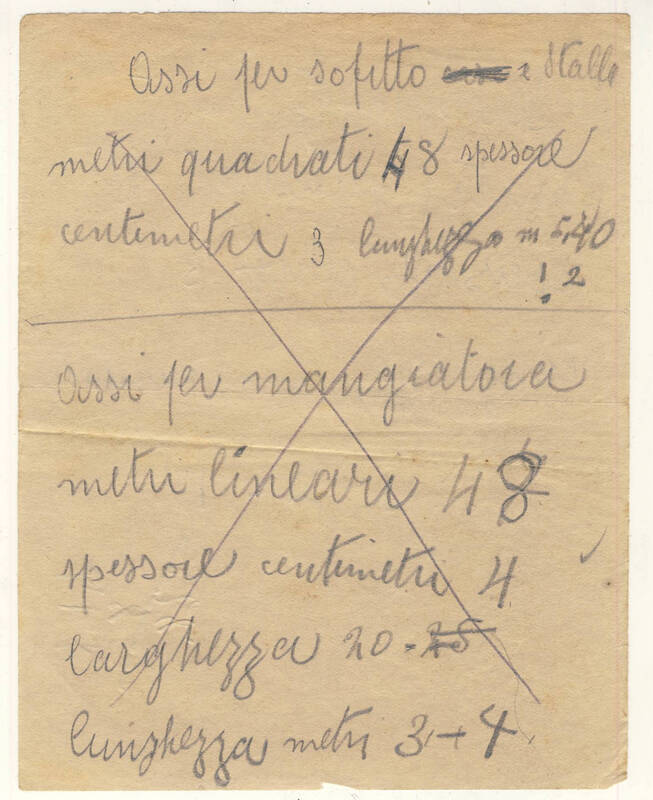 Assi per sofitto e Stalla
metri quadrati 48 spessore
centimetri 3 lunghezza m 5,40
1 2
Assi per mangiatoia
metri lineari 48
spessore centimetri 4
larghezza 20 - 25
lunghezza metri 3 + 4